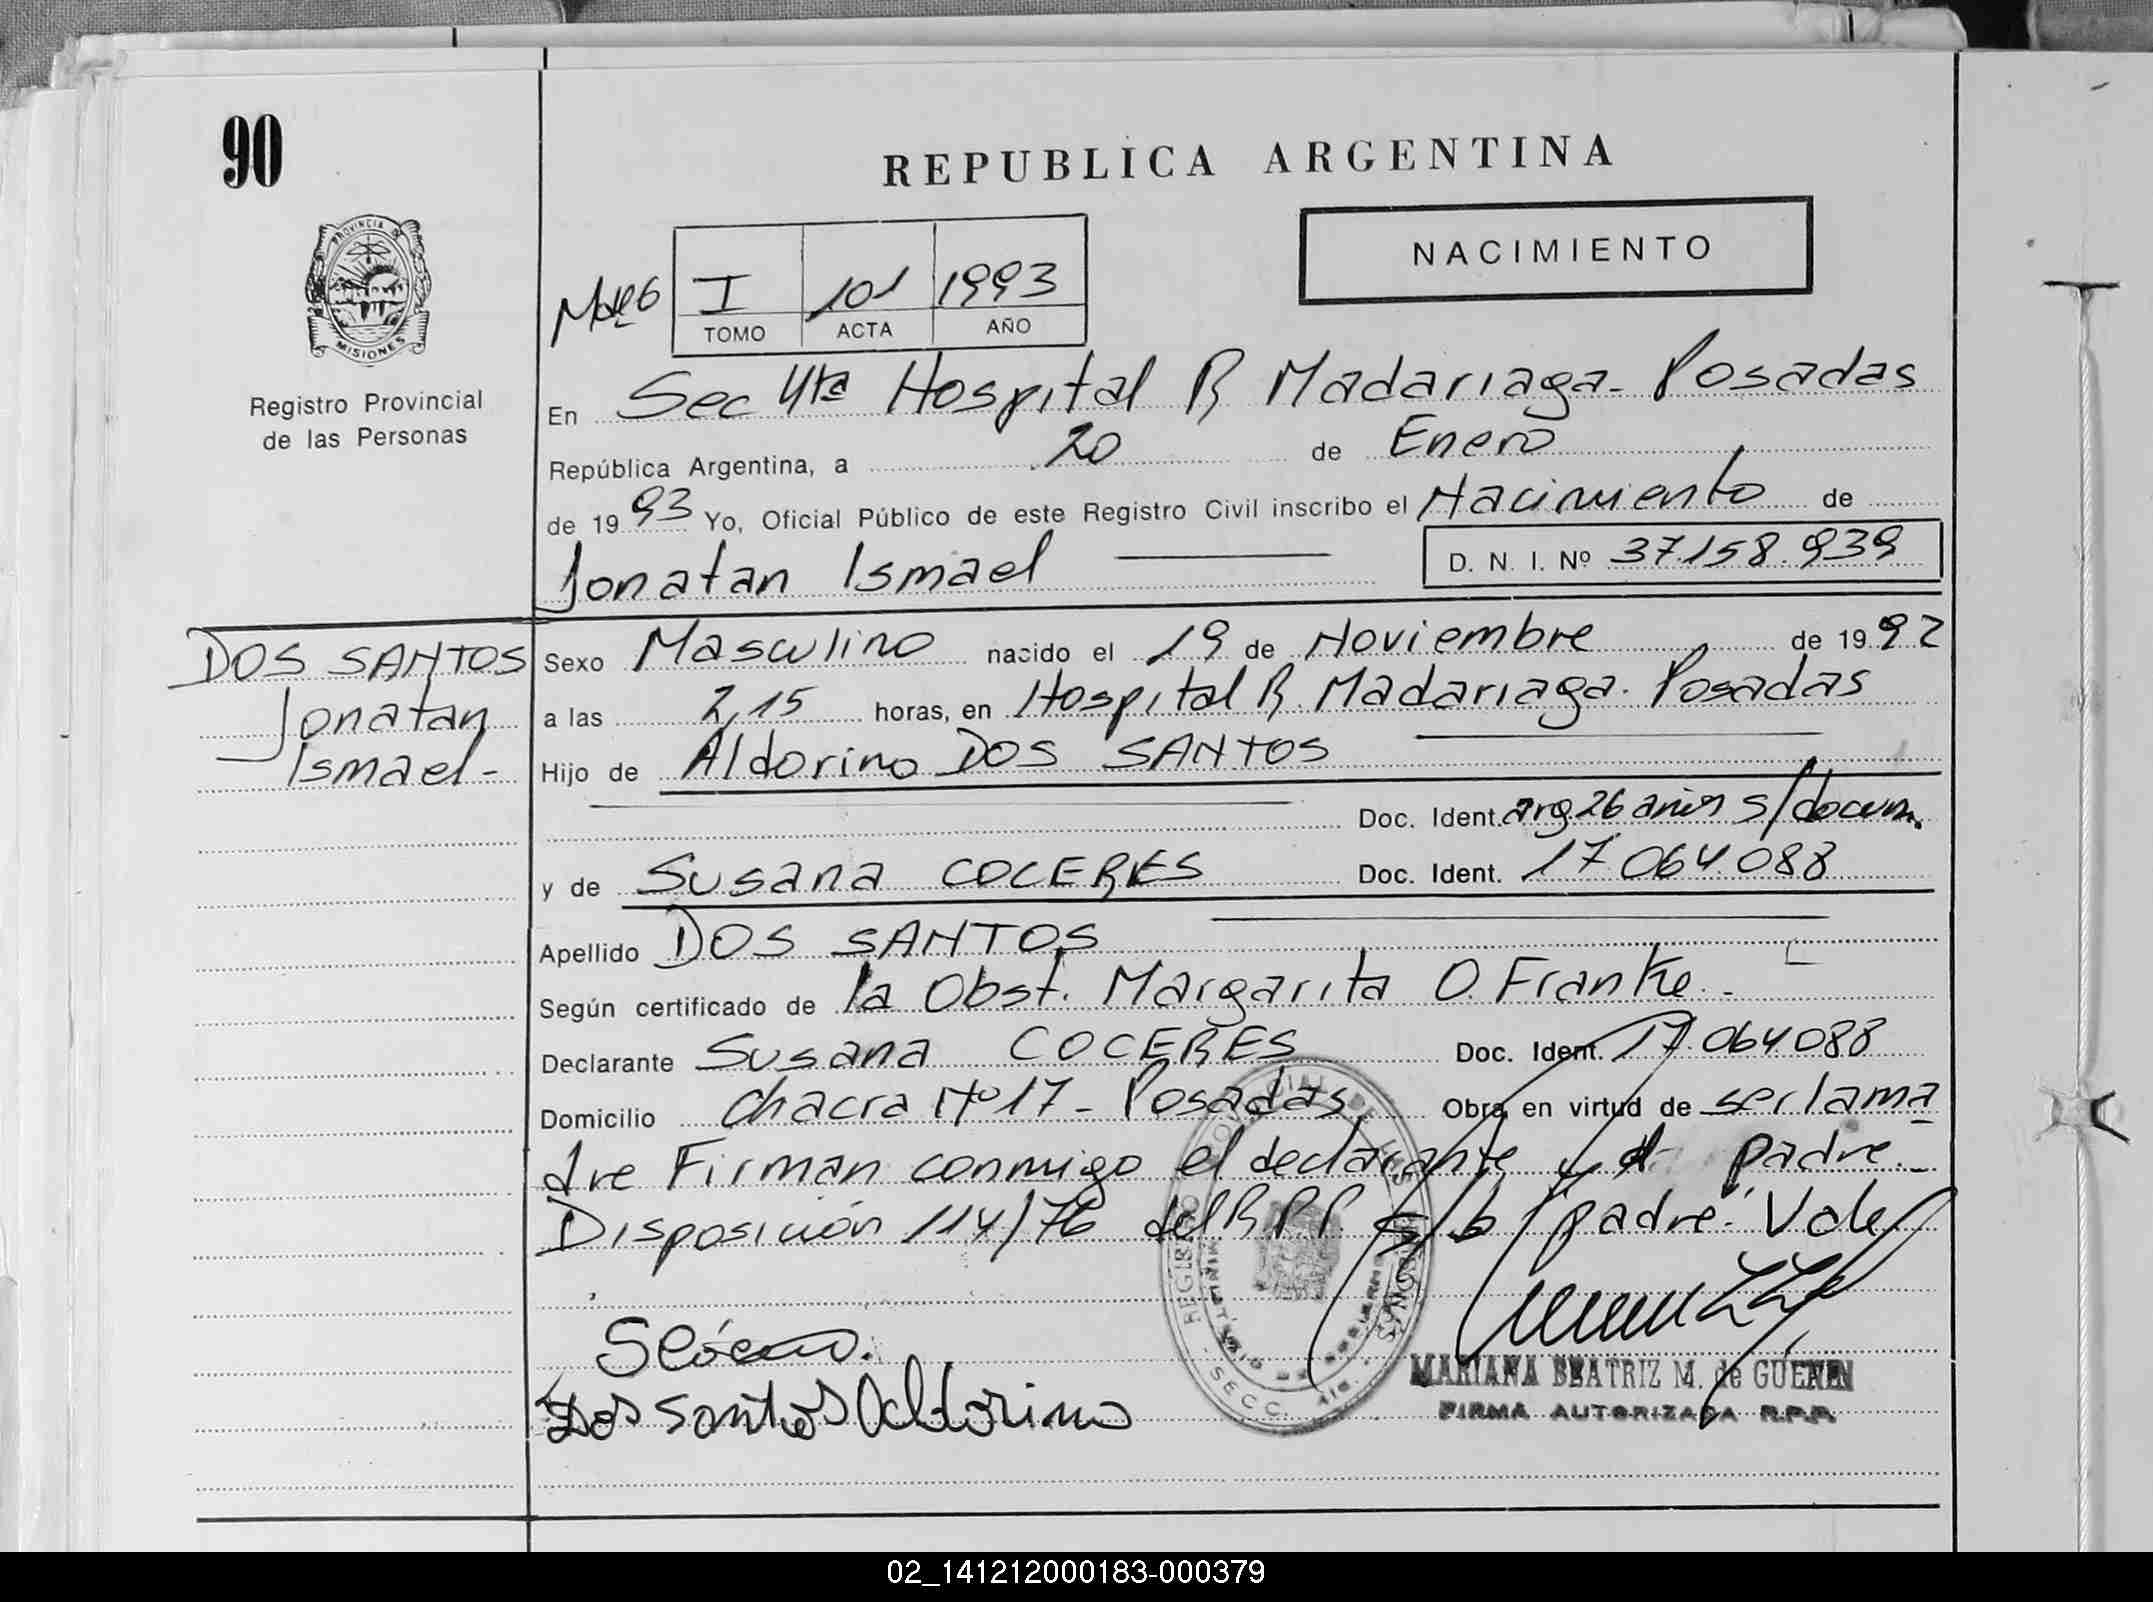 90
REPUBLICA ARGENTINA
NACIMIENTO
PROVINCIA DE
MISIONES
Registro Provincial
de las Personas
I 101 1993
TOMO ACTA AÑO
En Sec 4ta Hospital R Madariaga - Posadas
República Argentina, a 20 de Enero
de 1993 Yo, Oficial Público de este Registro Civil inscribo el Nacimiento de
Jonatan Ismael D. N. I. Nº 37.158.939
DOS SANTOS
Jonatan
Ismael-
Sexo Masculino nacido el 19 de Noviembre de 1992
a las 2,15 horas, en Hospital R. Madariaga. Posadas
Hijo de Aldorino DOS SANTOS
Doc. Ident. arg. 26 años s/docum.
y de Susana COCERES Doc. Ident. 17.064.088
Apellido DOS SANTOS
Según certificado de la Obst. Margarita O. Franke.-
Declarante Susana COCERES Doc. Ident. 17.064088
Domicilio chacra Nº 17 - Posadas. Obra en virtud de ser la ma
dre Firman conmigo el declarante y el padre.-
Disposición 114/76 del R.P.P. s/b "padre" Vale
Dos Santos Aldorino
REGISTRO PROVINCIAL DE LAS PERSONAS
MINISTERIO DE GOBIERNO
SECC. 4ta.
MISIONES
MARIANA BEATRIZ M. de GUENEN
FIRMA AUTORIZADA R.P.P.
02_141212000183-000379